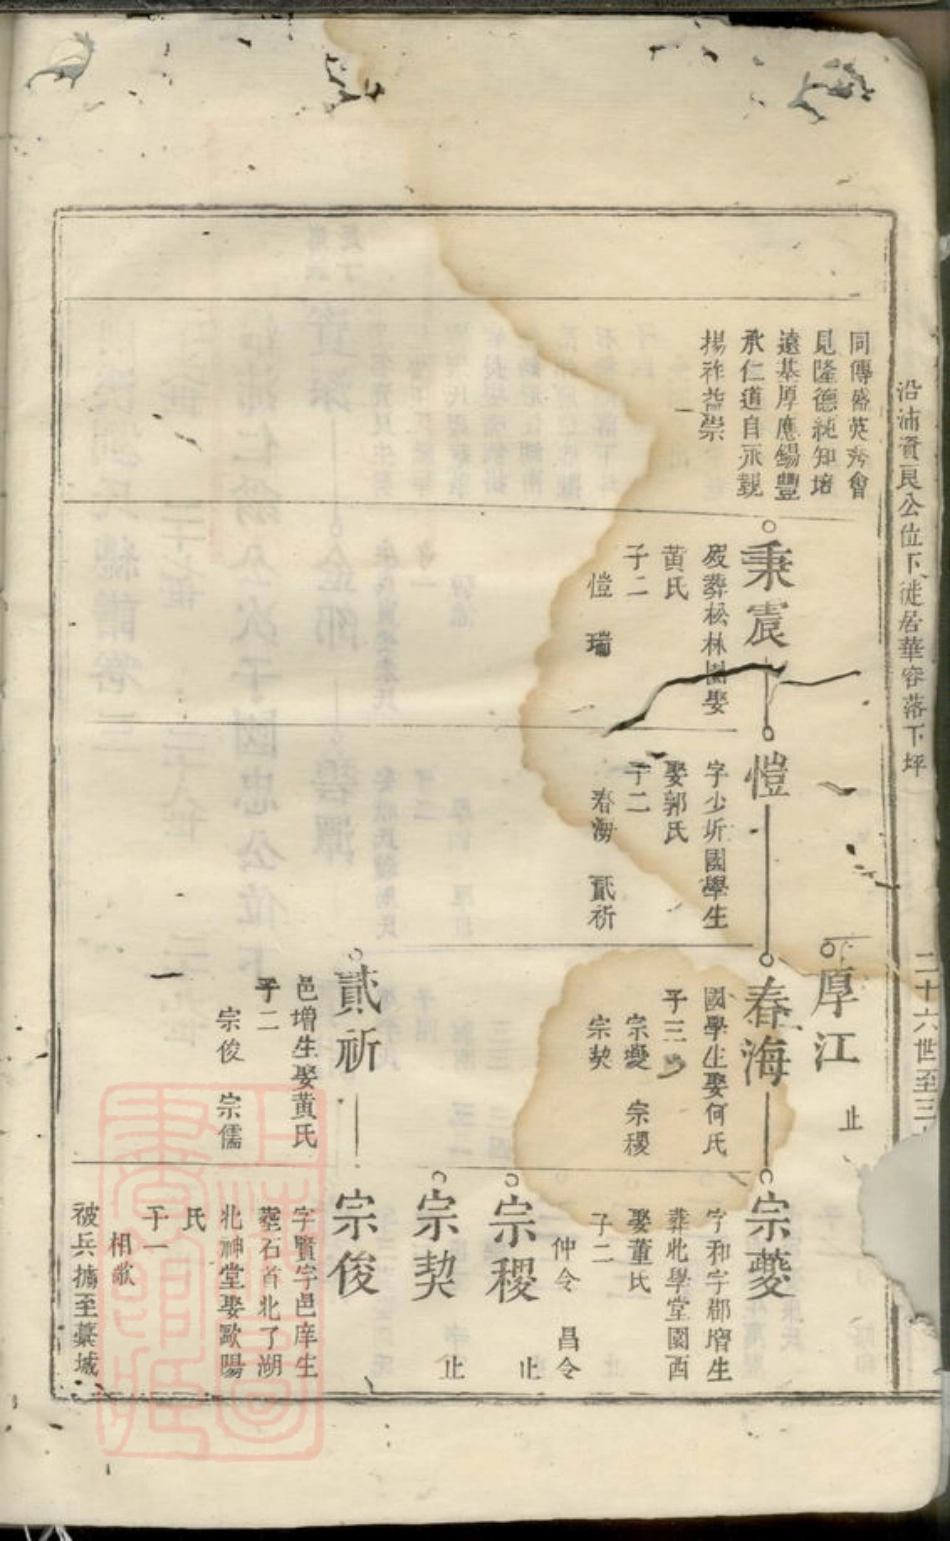 沿浦資良公位下徙居華容落下坪
二十六世至三
同傳盛英秀會
見隆德純知培
遠基厚應錫豐
永仁道自承親
揚祚益崇
秉宸
歿葬松林園娶
黃氏
子二
愷 瑞
愷
字少圻國學生
娶郭氏
子二
春海 貳祈
厚江
止
春海
國學生娶何氏
子三
宗夔 宗稷
宗契
貳祈
邑增生娶黃氏
子二
宗俊 宗儒
宗夔
字和宇郡增生
葬北學堂園西
娶董氏
子二
仲令 昌令
宗稷
止
宗契
止
宗俊
字賢宇邑庠生
塟石首北了湖
北神堂娶歐陽
氏
子一
相歌
被兵擄至藁城